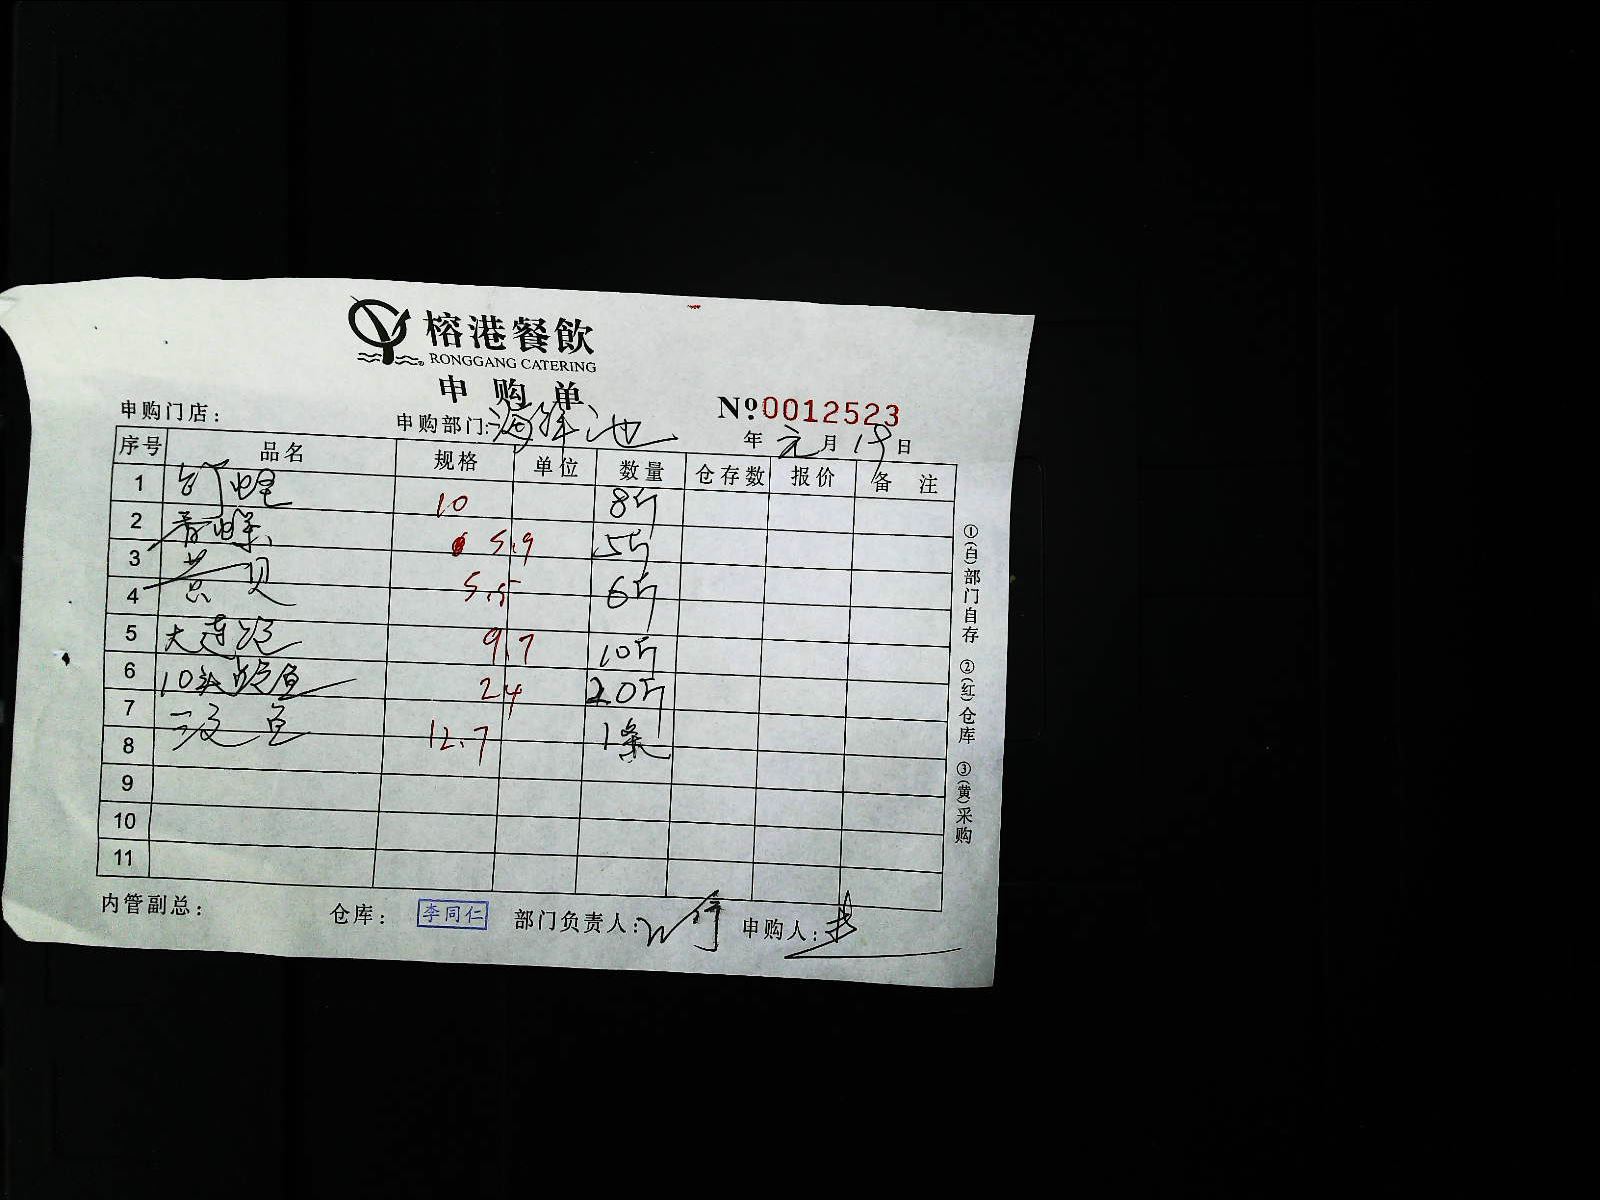 榕港餐飲
RONGGANG CATERING
申购单
№0012523
申购门店: 申购部门:海鲜池 年 元 月 19 日
序号 品名 规格 单位 数量 仓存数 报价 备注
1 蛏 10 8斤
2 青螺 5.9 5斤
3 黄贝 5.5 6斤
4
5 大连鲍 9.7 10斤
6 10头鲍鱼 24 20斤
7 三文鱼 12.7 1条
8
9
10
11
内管副总: 仓库: 李同仁 部门负责人: 申购人:
①(白)部门自存 ②(红)仓库 ③(黄)采购